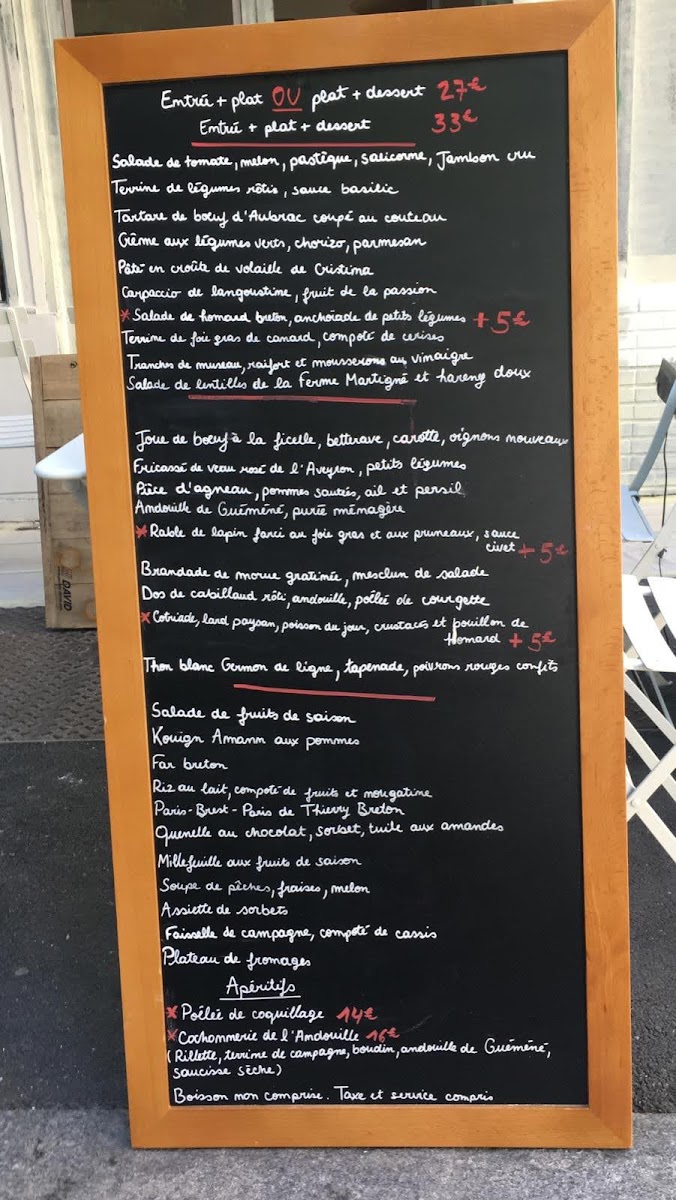 Entrée + plat OU plat + dessert 27€
Entrée + plat + dessert 33€
Salade de tomate, melon, pastèque, salicorne, Jambon cru
Terrine de légumes rôtis, sauce basilic
Tartare de bœuf d'Aubrac coupé au couteau
Crème aux légumes verts, chorizo, parmesan
Pâté en croûte de volaille de Cristina
Carpaccio de langoustine, fruit de la passion
* Salade de homard breton, anchoïade de petits légumes + 5€
Terrine de foie gras de canard, compoté de cerises
Tranches de museau, raifort et mousserons au vinaigre
Salade de lentilles de la Ferme Martigné et hareng doux
Joue de bœuf à la ficelle, betterave, carotte, oignons nouveaux
Fricassé de veau rosé de l'Aveyron, petits légumes
Pièce d'agneau, pommes sautées, ail et persil
Andouille de Guéméné, purée ménagère
* Rable de lapin farci au foie gras et aux pruneaux, sauce
civet + 5€
Brandade de morue gratinée, mesclun de salade
Dos de cabillaud rôti, andouille, poêlée de courgette
* Cotriade, lard paysan, poisson du jour, crustacés et bouillon de
homard + 5€
Thon blanc Germon de ligne, tapenade, poivrons rouges confits
Salade de fruits de saison
Kouign Amann aux pommes
Far breton
Riz au lait, compoté de fruits et nougatine
Paris-Brest-Paris de Thierry Breton
Quenelle au chocolat, sorbet, tuile aux amandes
Millefeuille aux fruits de saison
Soupe de pêches, fraises, melon
Assiette de sorbets
Faisselle de campagne, compoté de cassis
Plateau de fromages
Apéritifs
* Poêlée de coquillage 14€
* Cochonnerie de l'Andouille 16€
(Rillette, terrine de campagne, boudin, andouille de Guéméné,
saucisse sèche)
Boisson non comprise. Taxe et service compris
DAVID